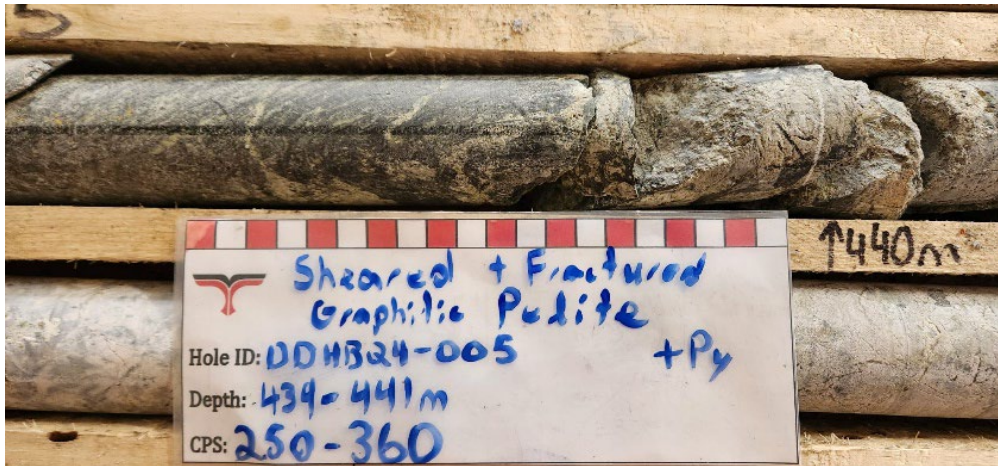 5
↑440m
Sheared + Fractured
Graphitic Pelite
+Py
Hole ID: DDHB24-005
Depth: 439-441m
CPS: 250-360